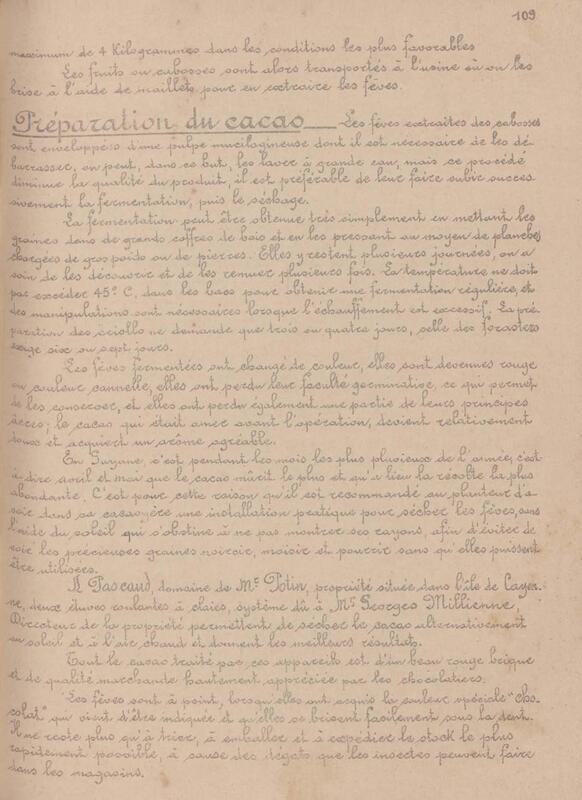 109
maximum de 4 Kilogrammes dans les conditions les plus favorables
Les fruits ou cabosses sont alors transportés à l'usine où on les
brise à l'aide de maillets pour en extraire les fèves.
Préparation du cacao — Les fèves extraites des cabosses
sont enveloppées d'une pulpe mucilagineuse dont il est nécessaire de les dé-
barrasser, on peut, dans ce but, les laver à grande eau, mais ce procédé
diminue la qualité du produit, il est préférable de leur faire subir succes
sivement la fermentation, puis le séchage.
La fermentation peut être obtenue très simplement en mettant les
graines dans de grands coffres de bois et en les pressant au moyen de planches
chargées de gros poids ou de pierres. Elles y restent plusieurs journées, on a
soin de les découvrir et de les remuer plusieurs fois. La température ne doit
pas excéder 45° C, dans les bacs pour obtenir une fermentation régulière, et
des manipulations sont nécessaires lorsque l'échauffement est excessif. La pré-
paration des criollo ne demande que trois ou quatre jours, celle des forastero
exige six ou sept jours.
Les fèves fermentées ont changé de couleur, elles sont devenues rouge
ou couleur cannelle, elles ont perdu leur faculté germinative, ce qui permet
de les conserver, et elles ont perdu également une partie de leurs principes
âcres; le cacao qui était amer avant l'opération, devient relativement
doux et acquiert un arôme agréable.
En Guyane, c'est pendant les mois les plus pluvieux de l'année, c'est
à dire avril et mai que le cacao mûrit le plus et qu'a lieu la récolte la plus
abondante. C'est pour cette raison qu'il est recommandé au planteur d'a-
voir dans sa cacaoyère une installation pratique pour sécher les fèves, sans
l'aide du soleil qui s'obstine à ne pas montrer ses rayons, afin d'éviter de
voir les précieuses graines noircir, moisir et pourrir sans qu'elles puissent
être utilisées.
A Pascaud, domaine de Mr Potin, propriété située dans l'île de Cayen-
ne, deux étuves roulantes à claies, système dû à Mr Georges Millienne,
Directeur de la propriété permettent de sécher le cacao alternativement
au soleil et à l'air chaud et donnent les meilleurs résultats.
Tout le cacao traité par ces appareils est d'un beau rouge brique
et de qualité marchande hautement appréciée par les chocolatiers.
Les fèves sont à point, lorsqu'elles ont acquis la couleur spéciale "cho-
colat" qui vient d'être indiquée et qu'elles se brisent facilement sous la dent.
Il ne reste plus qu'à trier, à emballer et à expédier le stock le plus
rapidement possible, à cause des dégats que les insectes peuvent faire
dans les magasins.